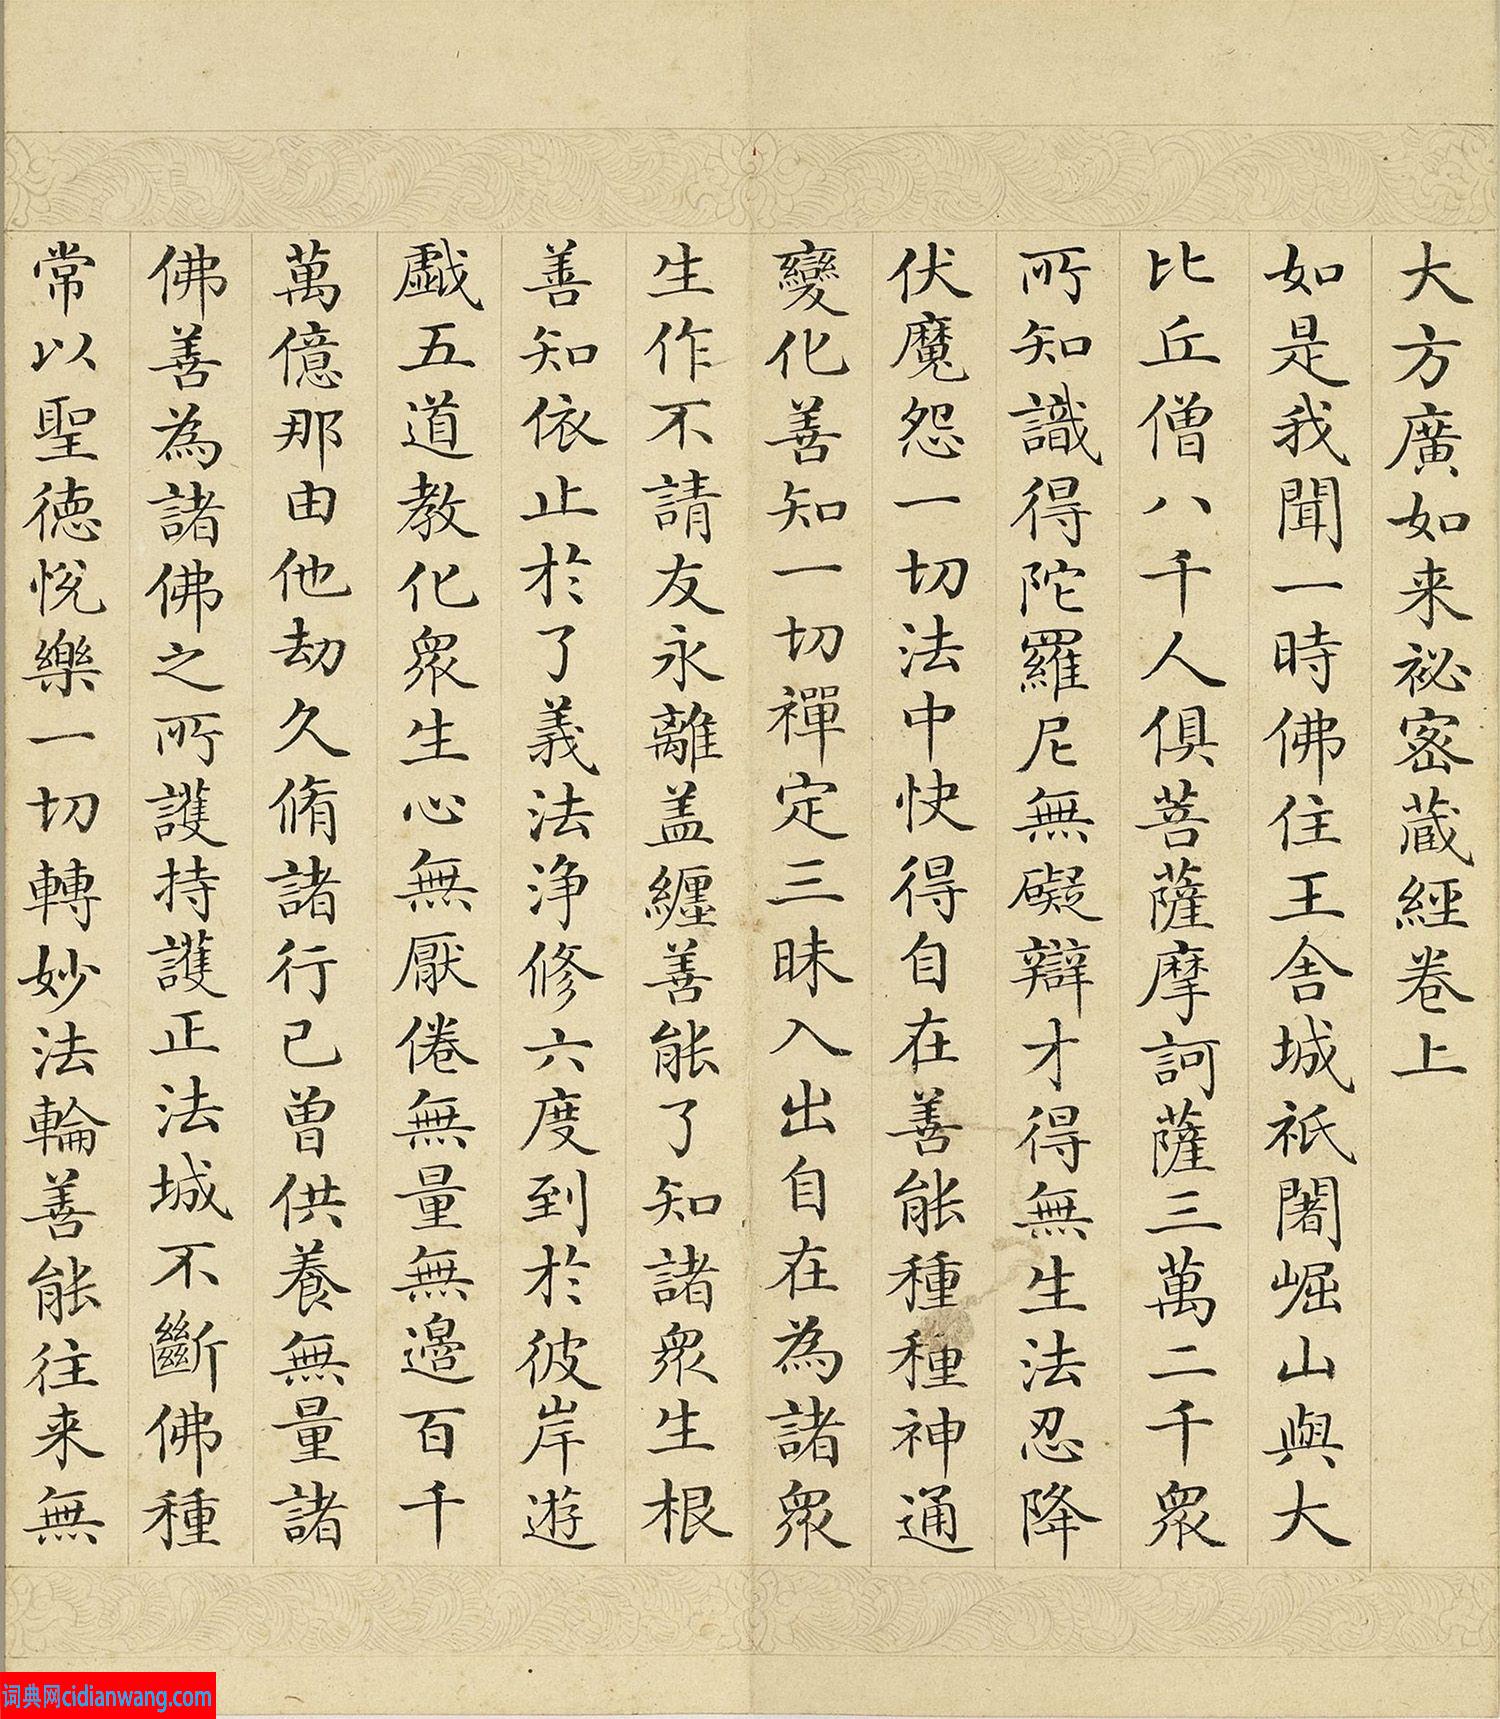 大方廣如来祕密蔵經卷上
如是我聞一時佛住王舍城祇闍崛山與大
比丘僧八千人俱菩薩摩訶薩三萬二千衆
所知識得陀羅尼無礙辯才得無生法忍降
伏魔怨一切法中快得自在善能種種神通
變化善知一切禪定三昧入出自在為諸衆
生作不請友永離盖纏善能了知諸衆生根
善知依止於了義法浄修六度到於彼岸遊
戱五道教化衆生心無厭倦無量無邊百千
萬億那由他劫久脩諸行已曾供養無量諸
佛善為諸佛之所護持護正法城不斷佛種
常以聖徳悅樂一切轉妙法輪善能往来無
词典网cidianwang.com